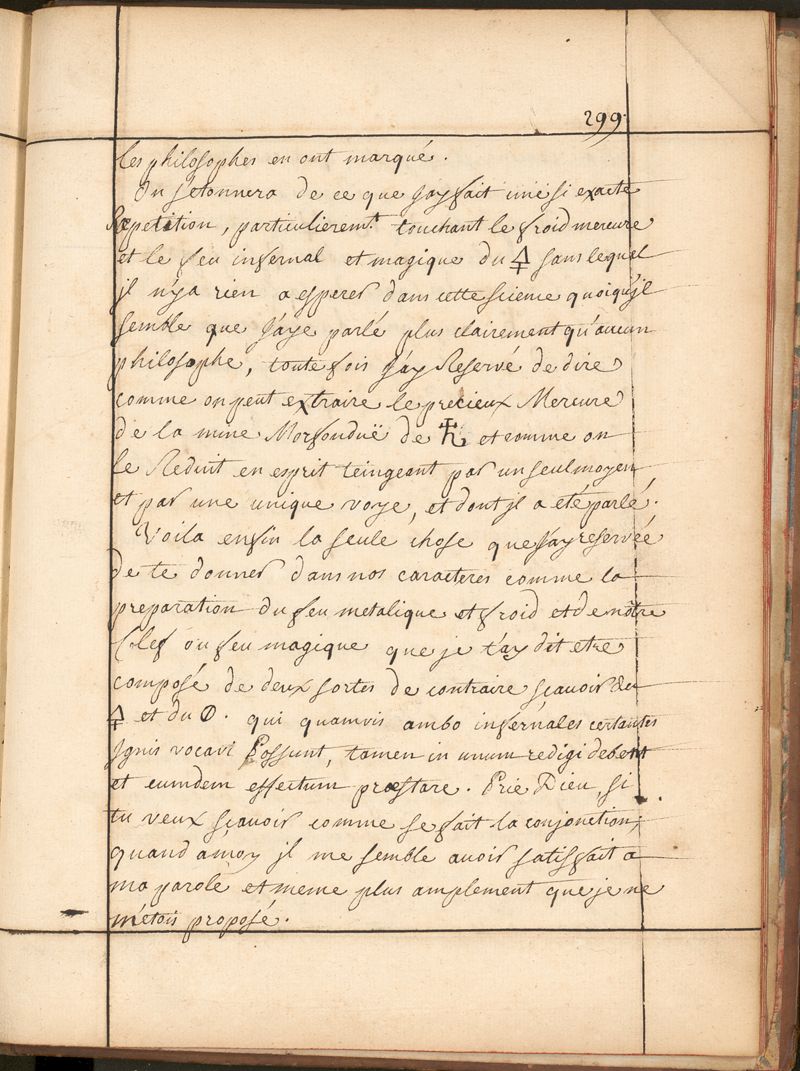 299.
les philosophes en ont marqué.
On setonnera de ce que Jay fait une si exacte
Repetition, particulierem.t touchant le froid mercure
et le feu infernal et magique du 🜍 sans lequel
jl n'ya rien a esperer dans cette science quoiqu'jl
semble que J'aye parlé plus clairement qu'aucun
philosophe, toute fois J'ay Reservé de dire
comme on peut extraire le precieux Mercure
de la mine Morfonduë de ♄ et comme on
le Reduit en esprit teingeant par un seul moyen
et par une unique voye, et dont jl a eté parlé.
Voila enfin la seule chose que J'ay reservée
de te donner dans nos caracteres comme la
preparation du feu metalique et froid et de nôtre
Clef ou feu magique que je t'ay dit etre
composé de deux sortes de contraire sçavoir du
🜍 et du 🜔. qui quamvis ambo infernales certantes
Jgnis vocari Possunt, tamen in unum redigi debent
et eumdem effectum præstare. Prie Dieu, si
tu veux sçavoir comme se fait la conjonction,
quand a moy jl me semble avoir satisfait a
ma parole et meme plus amplement que je ne
m'étois proposé.